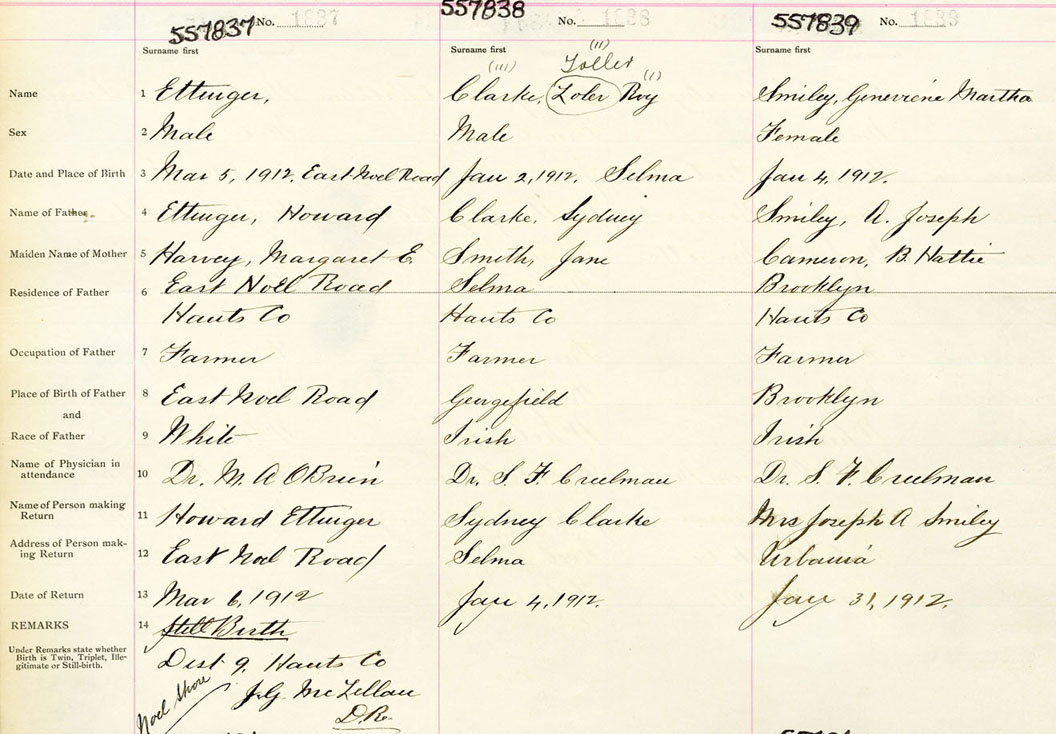 557837 No. 1837 557838 No. 1838 557839 No. 1839
Surname first Surname first Surname first
(11)
(111) Toller (1)
Name 1 Ettinger, Clarke, Loler Roy Smiley, Genevieve Martha
Sex 2 Male Male Female
Date and Place of Birth 3 Mar 5, 1912. East Noel Road Jan 2, 1912. Selma Jan 4, 1912.
Name of Father 4 Ettinger, Howard Clarke, Sydney Smiley, A. Joseph
Maiden Name of Mother 5 Harvey, Margaret E. Smith, Jane Cameron, B. Hattie
Residence of Father 6 East Noel Road Selma Brooklyn
Hants Co Hants Co Hants Co
Occupation of Father 7 Farmer Farmer Farmer
Place of Birth of Father 8 East Noel Road Georgefield Brooklyn
and
Race of Father 9 White Irish Irish
Name of Physician in
attendance 10 Dr. M. A O'Brien Dr. S. F. Creelman Dr. S. F. Creelman
Name of Person making
Return 11 Howard Ettinger Sydney Clarke Mrs Joseph A Smiley
Address of Person mak-
ing Return 12 East Noel Road Selma Urbania
Date of Return 13 Mar 6, 1912 Jan 4, 1912. Jan 31, 1912.
REMARKS 14 Still Birth
Under Remarks state whether
Birth is Twin, Triplet, Ille-
gitimate or Still-birth.
Dist 9. Hants Co
Noel Shore J.G. McLellan
D.R.